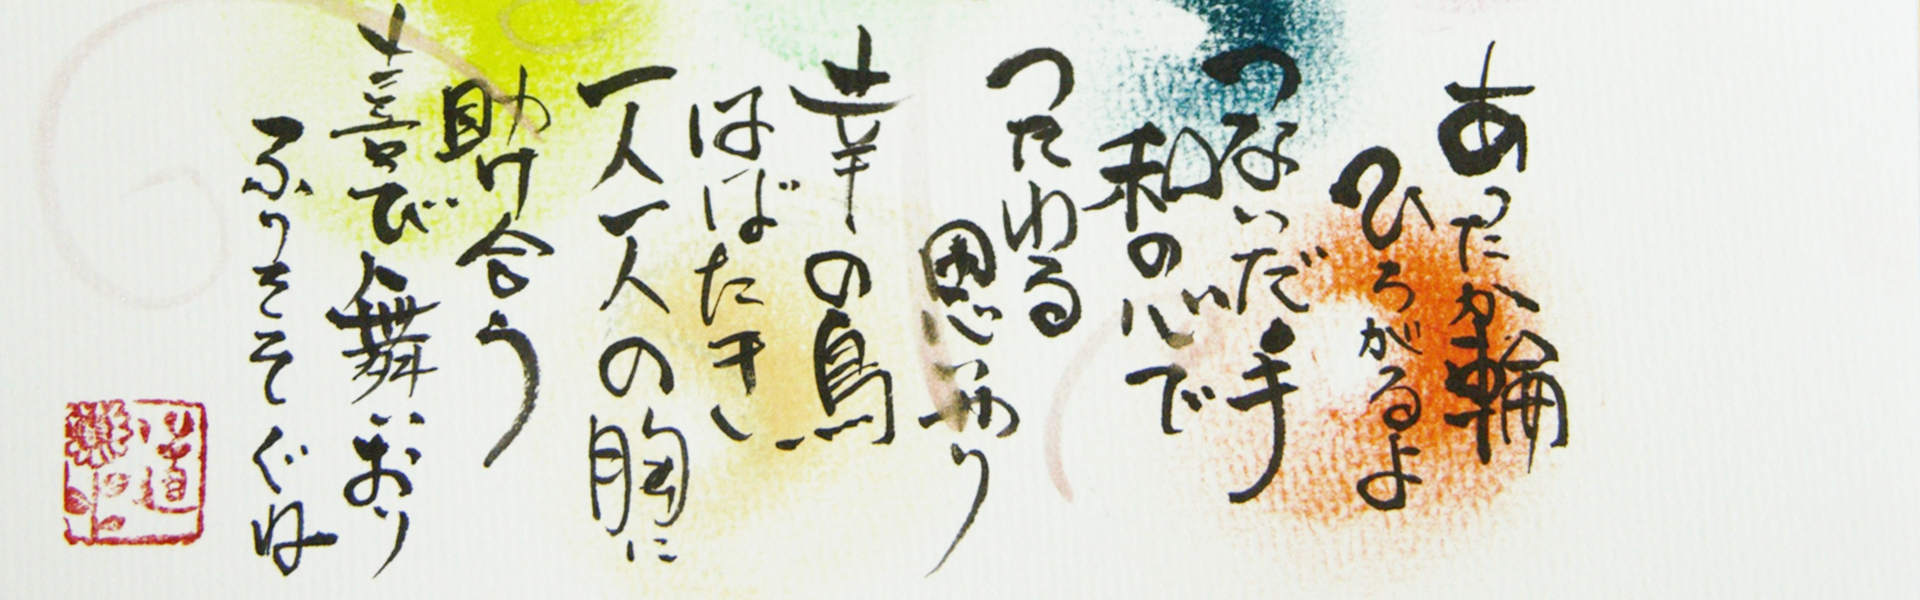 あったか輪
ひろがるよ
つないだ手
和の心で
つたわる
思いやり
幸の鳥
はばたき
一人一人の胸に
助け合う
喜び舞いおり
ふりそそぐね